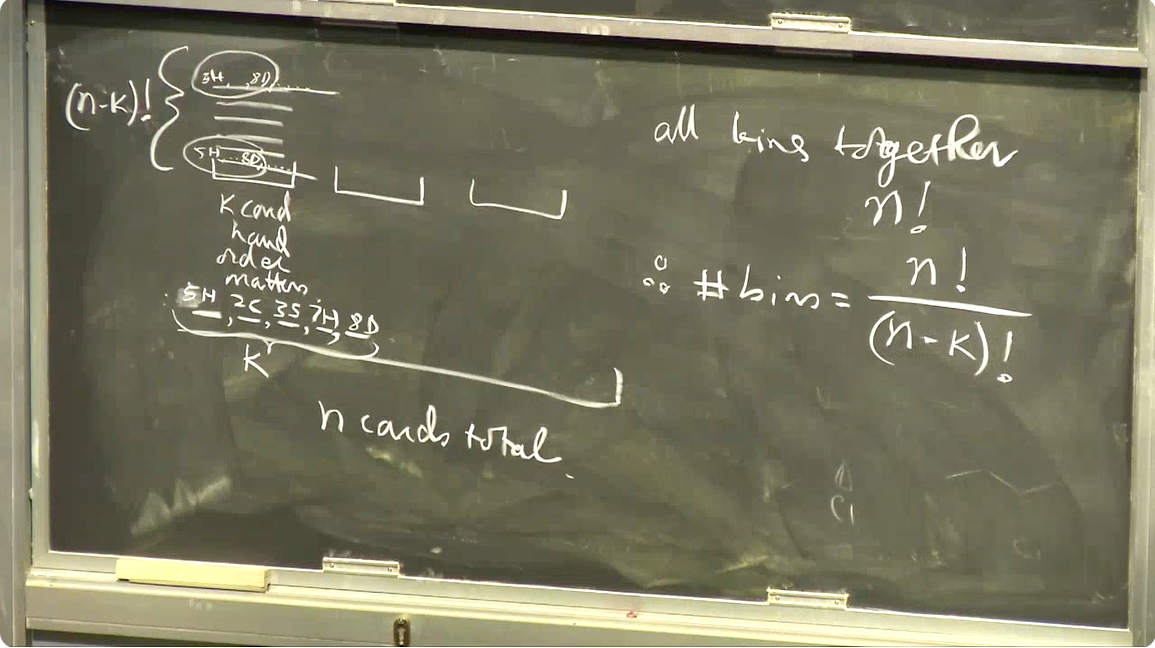 (n-k)!
5H, ..., 8D ......
5H ..... 8D ......
K card
hand
order
matters
5H, 2C, 3S, 7H, 8D
K
n cards total.
all bins together
n!
∴ # bins = n! / (n-k)!
Ci